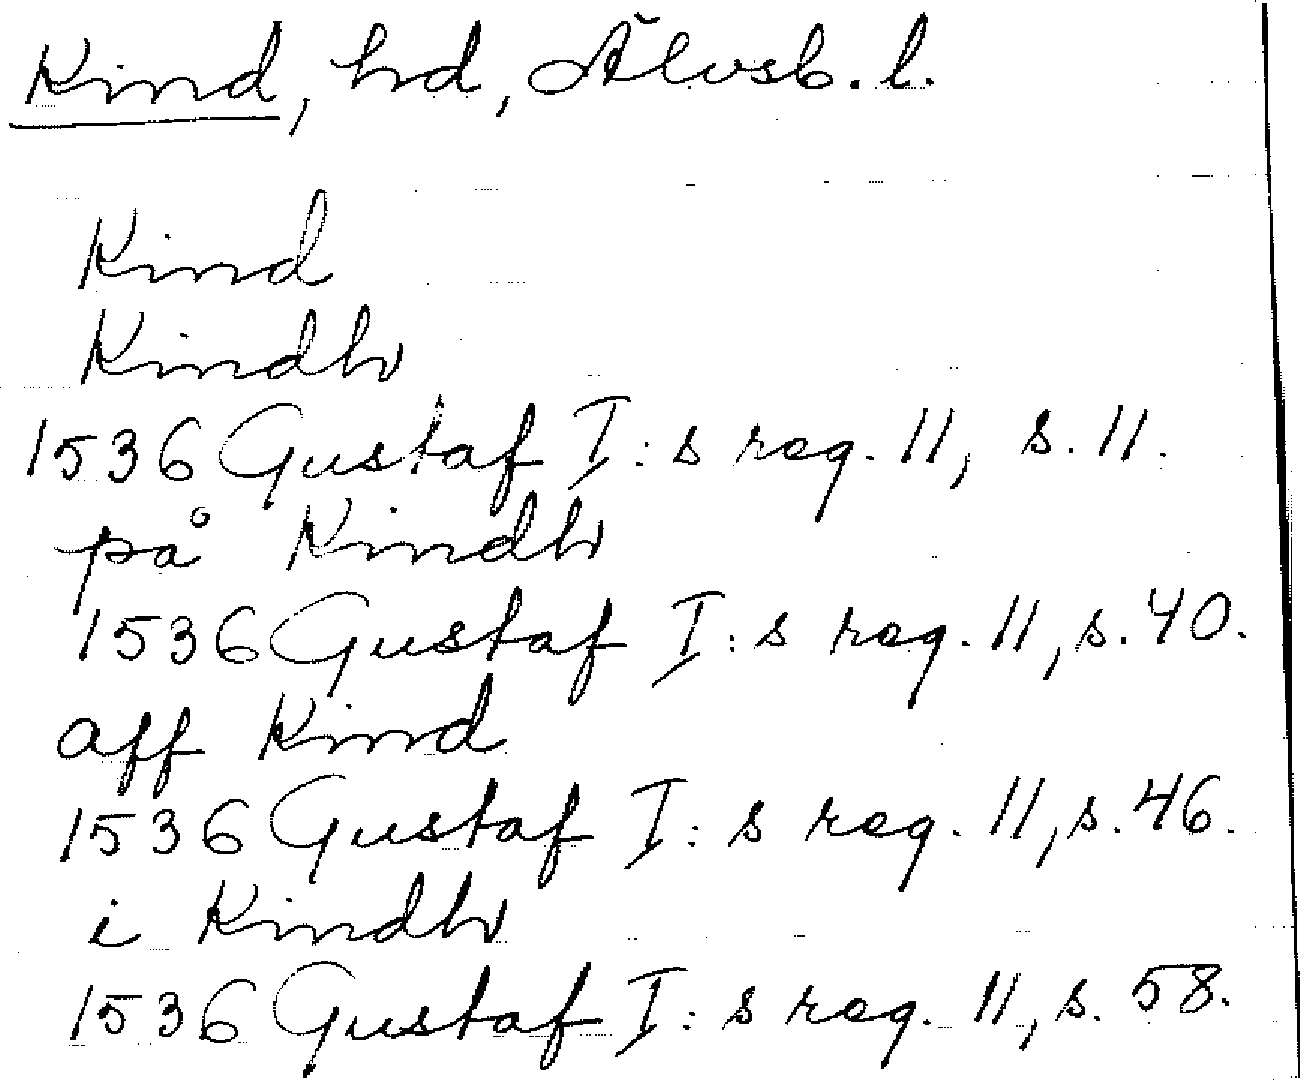 Kind, hd, Älvsb. l.
Kind
Kindh
1536 Gustaf I: s reg. 11, s. 11.
på Kindh
1536 Gustaf I: s reg. 11, s. 40.
aff Kind
1536 Gustaf I: s reg. 11, s. 46.
i Kindh
1536 Gustaf I: s reg. 11, s. 58.